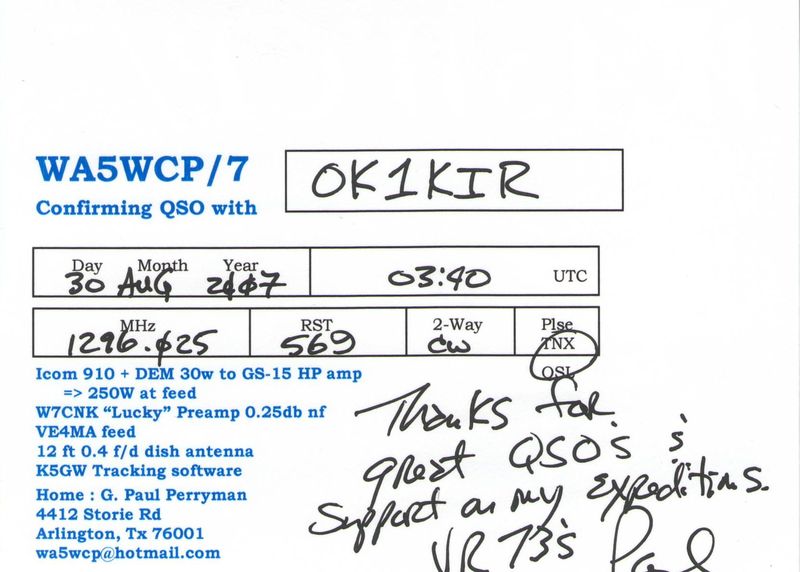 WA5WCP/7
OK1KIR
Confirming QSO with
Day Month Year
30 AUG 2007 03:40 UTC
MHz RST 2-Way Plse
1296.025 569 CW TNX
QSL
Icom 910 + DEM 30w to GS-15 HP amp
=> 250W at feed
W7CNK “Lucky” Preamp 0.25db nf
VE4MA feed
12 ft 0.4 f/d dish antenna
K5GW Tracking software
Home : G. Paul Perryman
4412 Storie Rd
Arlington, Tx 76001
wa5wcp@hotmail.com
Thanks for
great QSO's
support on my expeditions.
VR 73's Paul